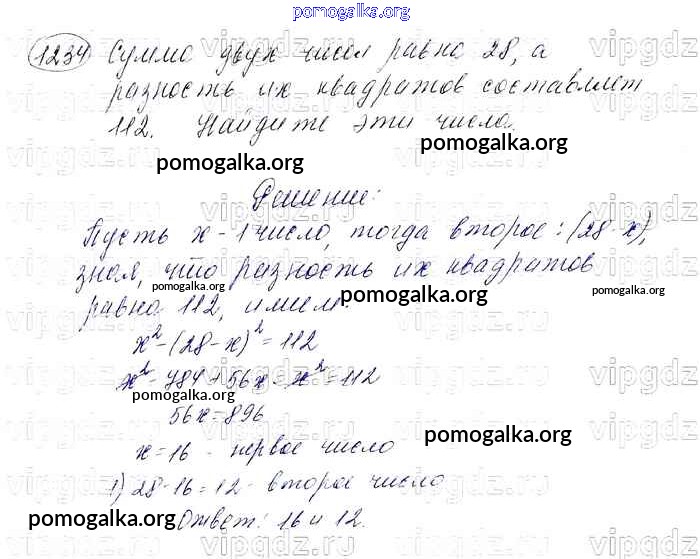 pomogalka.org
1234 Сумма двух чисел равна 28, а
разность их квадратов составляет
112. Найдите эти числа.
pomogalka.org
pomogalka.org
Решение:
Пусть x - 1 число, тогда второе: (28-x),
зная, что разность их квадратов
pomogalka.org
pomogalka.org
pomogalka.org
равна 112, имеем:
x² - (28-x)² = 112
x² - 784 + 56x - x² = 112
pomogalka.org
56x = 896
pomogalka.org
x = 16 - первое число
1) 28-16=12 - второе число
pomogalka.org
pomogalka.org
Ответ: 16 и 12.
vipgdz.ru